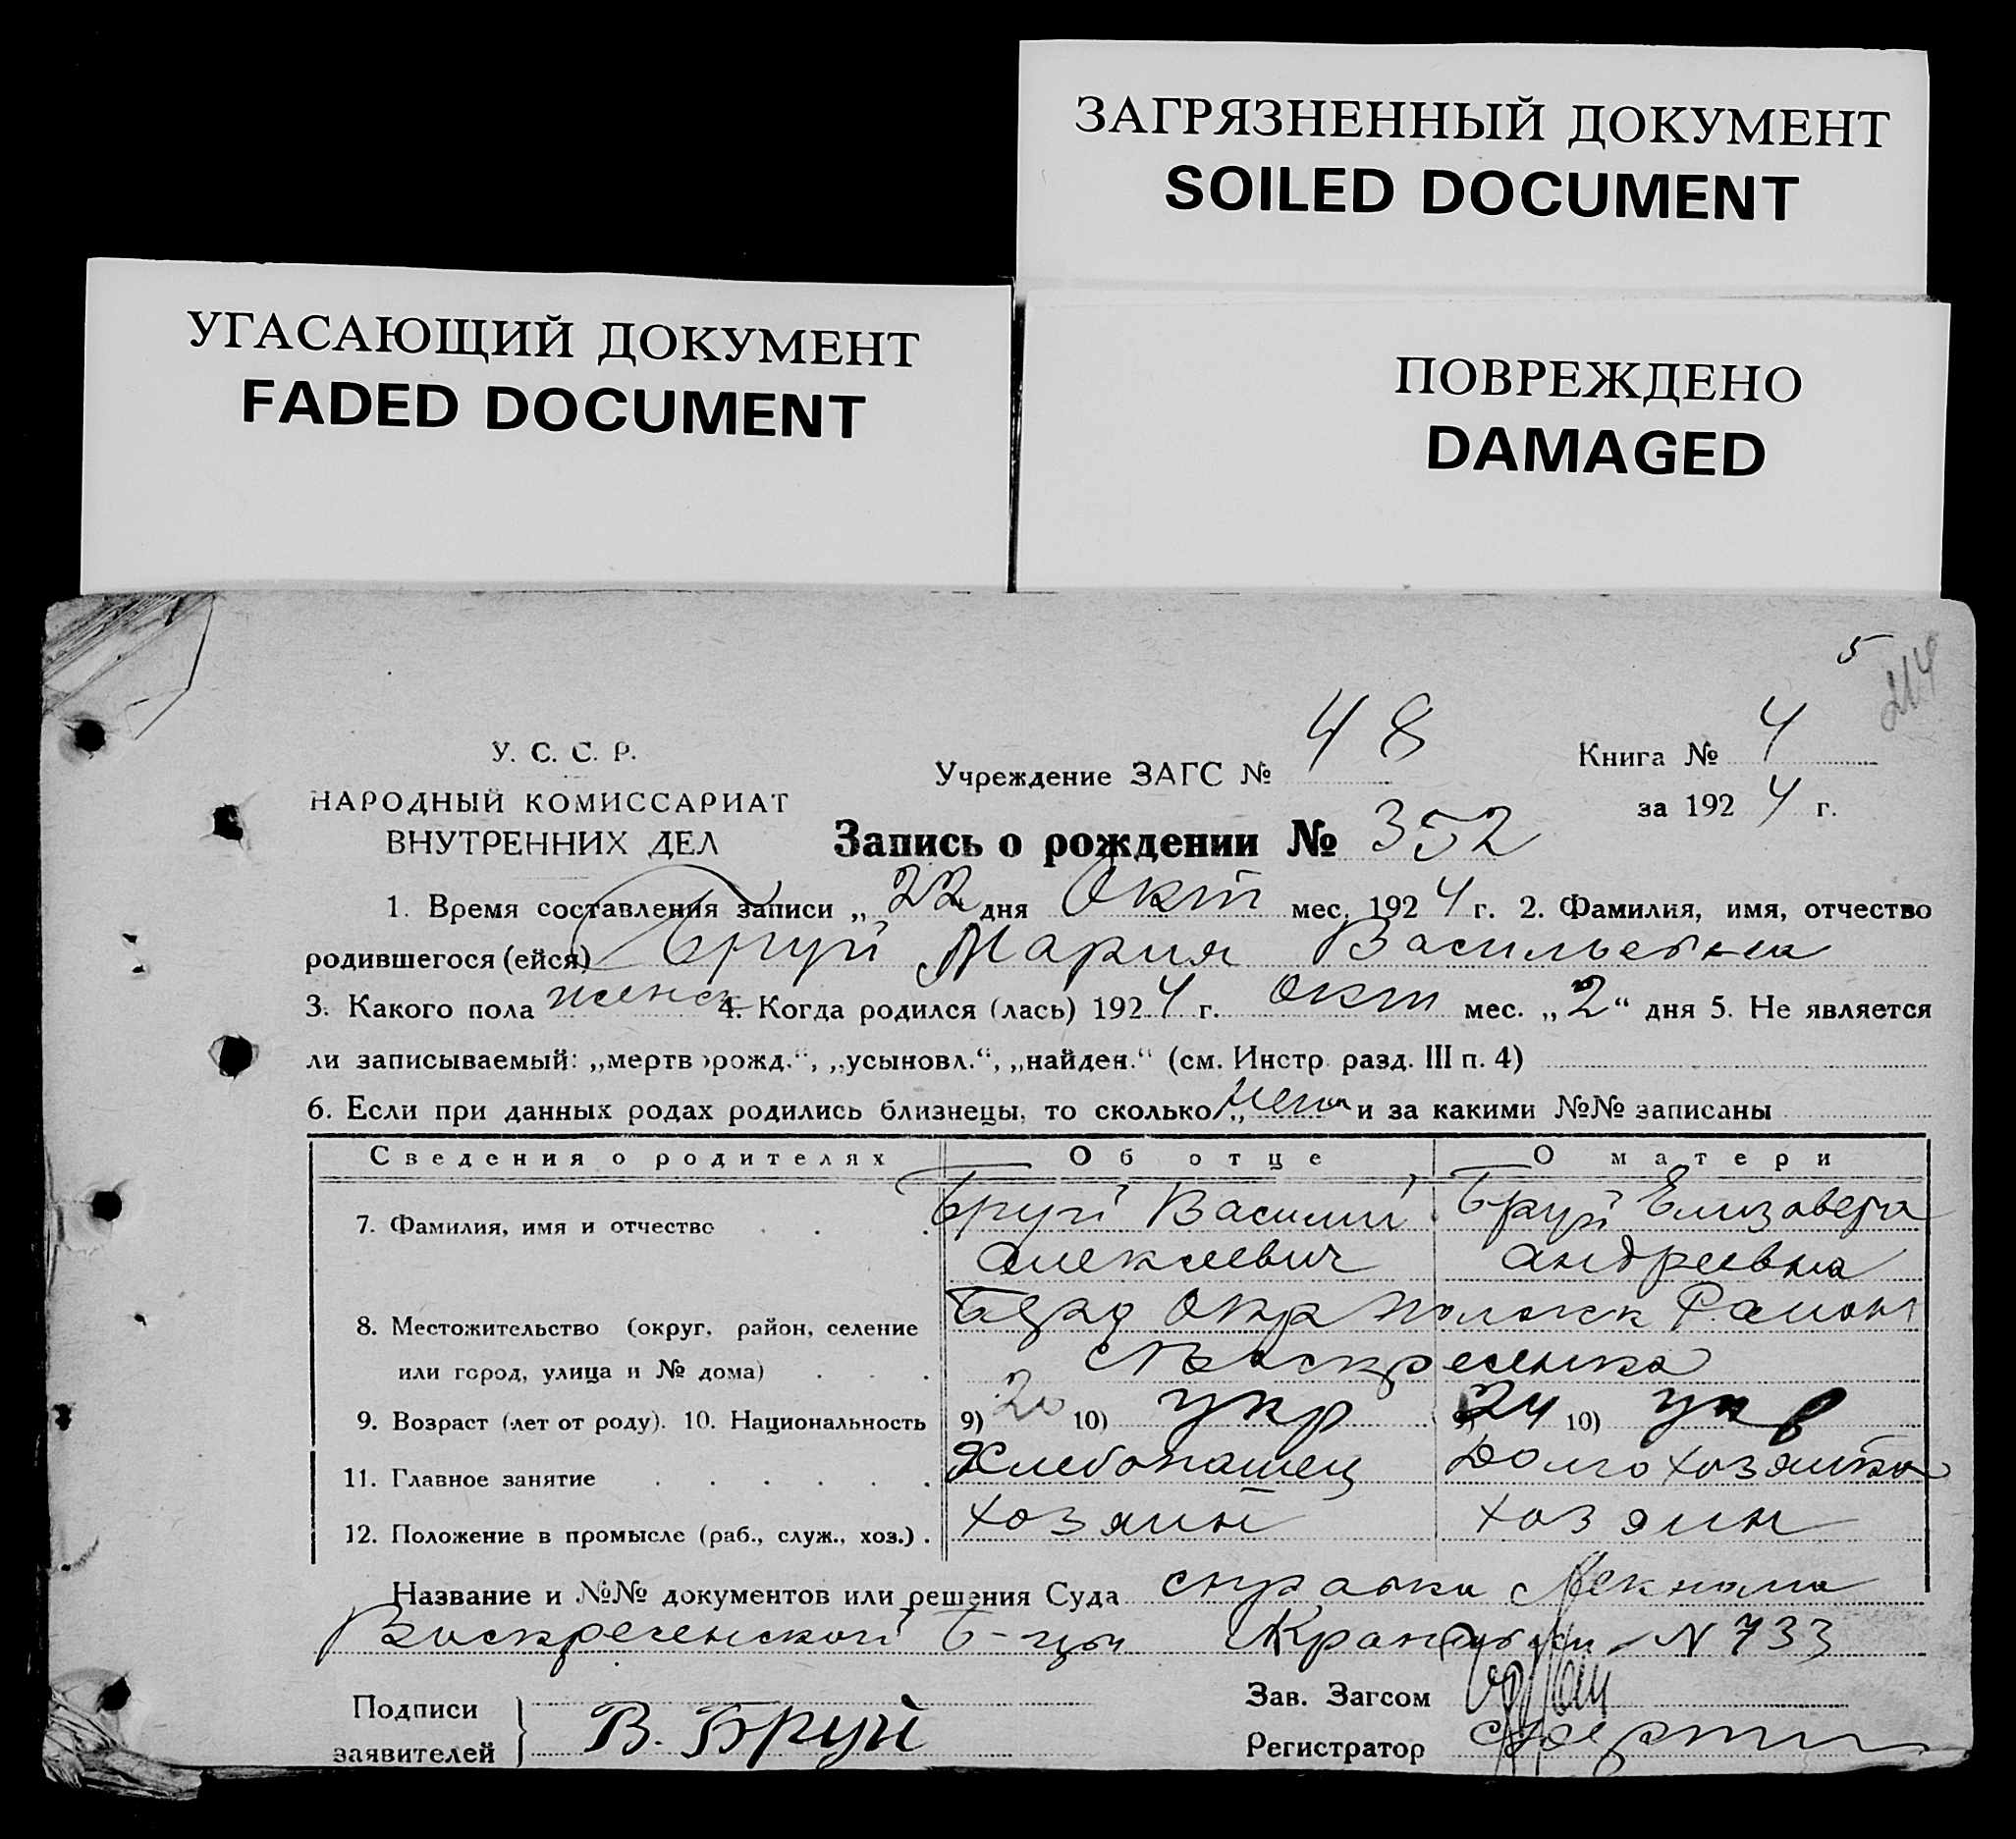 ЗАГРЯЗНЕННЫЙ ДОКУМЕНТ
SOILED DOCUMENT
УГАСАЮЩИЙ ДОКУМЕНТ
FADED DOCUMENT
ПОВРЕЖДЕНО
DAMAGED
5
У. С. С. Р.
НАРОДНЫЙ КОМИССАРИАТ
ВНУТРЕННИХ ДЕЛ
Учреждение ЗАГС № 48
Книга № 4
за 1924 г.
Запись о рождении № 352
1. Время составления записи „22 дня Окт мес. 1924 г. 2. Фамилия, имя, отчество
родившегося (ейся) Бруй Мария Васильевна
3. Какого пола женск 4. Когда родился (лась) 1924 г. окт мес. „2“ дня 5. Не является
ли записываемый: „мертворожд.“, „усыновл.“, „найден.“ (см. Инстр. разд. III п. 4)
6. Если при данных родах родились близнецы, то сколько „ “ и за какими №№ записаны
Сведения о родителях Об отце О матери
7. Фамилия, имя и отчество . . . Бруй Василий Бруй Елизавета
Алексеевич Андреевна
8. Местожительство (округ, район, селение Окр Район
или город, улица и № дома) . . .
9. Возраст (лет от роду). 10. Национальность 9) 20 10) укр 24 10) укр
11. Главное занятие . . . . . . Хлебопашец
12. Положение в промысле (раб., служ., хоз.) . хозяин хозяин
Название и №№ документов или решения Суда справка
Воскресенской N 733
Подписи
заявителей } В. Бруй
Зав. Загсом
Регистратор